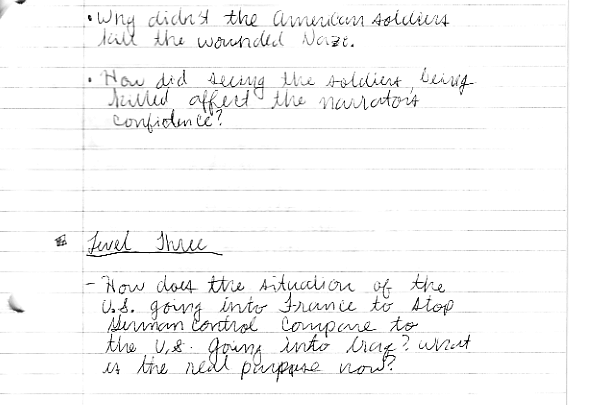 • Why didn't the American soldiers
kill the wounded Nazi.
• How did seeing the soldiers being
killed affect the narrators
confidence?
Level Three
- How does the situation of the
U.S. going into France to stop
German control compare to
the U.S. going into Iraq? what
is the real purpose now?